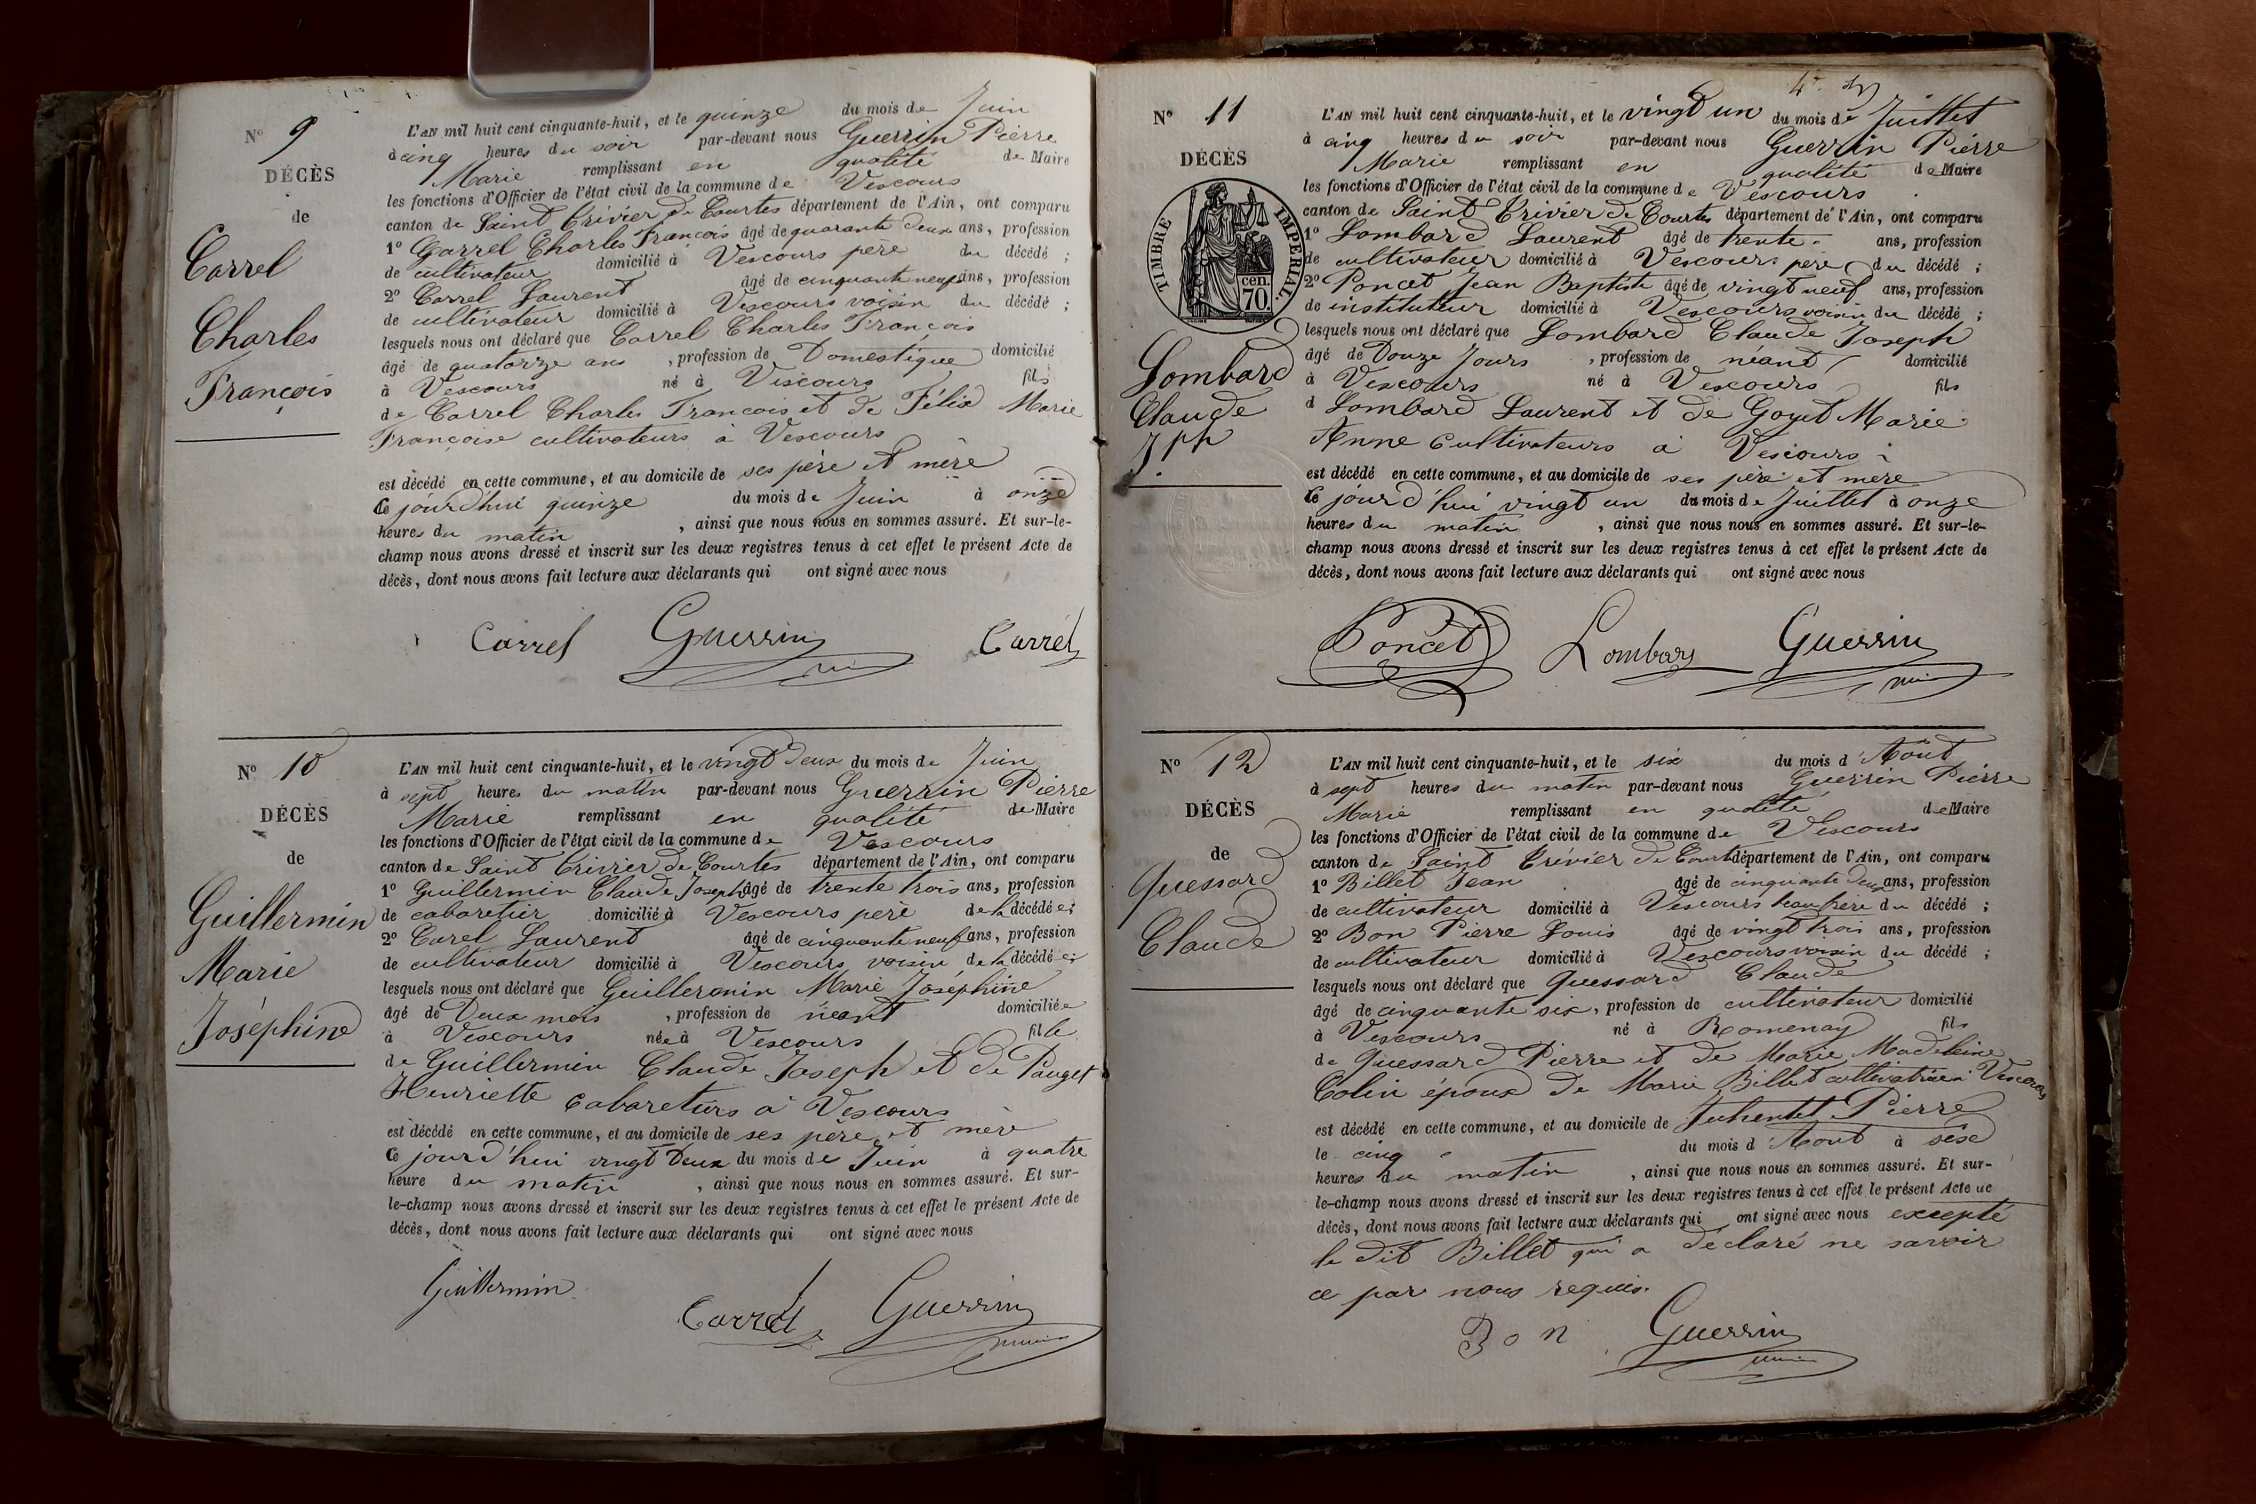 N° 9
DÉCÈS
de
Carrel
Charles
François
L'AN mil huit cent cinquante-huit, et le quinze du mois de Juin
à cinq heures du soir par-devant nous Guerrin Pierre
Marie remplissant en qualité de Maire
les fonctions d'Officier de l'état civil de la commune de Vescours
canton de Saint Trivier de Courtes département de l'Ain, ont comparu
1° Carrel Charles François âgé de quarante deux ans, profession
de cultivateur domicilié à Vescours père du décédé ;
2° Carrel Laurent âgé de cinquante neuf ans, profession
de cultivateur domicilié à Vescours voisin du décédé ;
lesquels nous ont déclaré que Carrel Charles François
âgé de quatorze ans , profession de Domestique domicilié
à Vescours né à Vescours fils
de Carrel Charles François et de Félix Marie
Françoise cultivateurs à Vescours
est décédé en cette commune, et au domicile de ses père et mère
Ce jourd'hui quinze du mois de Juin à onze
heures du matin , ainsi que nous nous en sommes assuré. Et sur-le-
champ nous avons dressé et inscrit sur les deux registres tenus à cet effet le présent Acte de
décès, dont nous avons fait lecture aux déclarants qui ont signé avec nous
Carrel Guerrin Carrel
N° 10
DÉCÈS
de
Guillermin
Marie
Joséphine
L'AN mil huit cent cinquante-huit, et le vingt deux du mois de Juin
à sept heures du matin par-devant nous Guerrin Pierre
Marie remplissant en qualité de Maire
les fonctions d'Officier de l'état civil de la commune de Vescours
canton de Saint Trivier de Courtes département de l'Ain, ont comparu
1° Guillermin Claude Joseph âgé de trente trois ans, profession
de cabaretier domicilié à Vescours père de la décédée ;
2° Carel Laurent âgé de cinquante neuf ans, profession
de cultivateur domicilié à Vescours voisin de la décédée ;
lesquels nous ont déclaré que Guillermin Marie Joséphine
âgé de Deux mois , profession de néant domiciliée
à Vescours née à Vescours fille
de Guillermin Claude Joseph et de Pauget
Henriette Cabaretiers à Vescours
est décédé en cette commune, et au domicile de ses père et mère
Ce jourd'hui vingt Deux du mois de Juin à quatre
heure du matin , ainsi que nous nous en sommes assuré. Et sur-
le-champ nous avons dressé et inscrit sur les deux registres tenus à cet effet le présent Acte de
décès, dont nous avons fait lecture aux déclarants qui ont signé avec nous
Guillermin Carrel Guerrin
N° 11
DÉCÈS
TIMBRE IMPERIAL.
cen.
70
Lombard
Claude
Jph
L'AN mil huit cent cinquante-huit, et le vingt un du mois de Juillet
à cinq heures du soir par-devant nous Guerrin Pierre
Marie remplissant en qualité de Maire
les fonctions d'Officier de l'état civil de la commune de Vescours
canton de Saint Trivier de Courtes département de l'Ain, ont comparu
1° Lombard Laurent âgé de trente ans, profession
de cultivateur domicilié à Vescours père du décédé ;
2° Poncet Jean Baptiste âgé de vingt neuf ans, profession
de instituteur domicilié à Vescours voisin du décédé ;
lesquels nous ont déclaré que Lombard Claude Joseph
âgé de Douze Jours , profession de néant domicilié
à Vescours né à Vescours fils
d Lombard Laurent et de Goyet Marie
Anne Cultivateurs à Vescours
est décédé en cette commune, et au domicile de ses père et mere
Ce jourd'hui vingt un du mois de Juillet à onze
heures du matin , ainsi que nous nous en sommes assuré. Et sur-le-
champ nous avons dressé et inscrit sur les deux registres tenus à cet effet le présent Acte de
décès, dont nous avons fait lecture aux déclarants qui ont signé avec nous
Poncet Lombard Guerrin
N° 12
DÉCÈS
de
Quessard
Claude
L'AN mil huit cent cinquante-huit, et le six du mois d'Aout
à sept heures du matin par-devant nous Guerrin Pierre
Marie remplissant en qualité de Maire
les fonctions d'Officier de l'état civil de la commune de Vescours
canton de Saint Trévier de Courtes département de l'Ain, ont comparu
1° Billet Jean âgé de cinquante deux ans, profession
de cultivateur domicilié à Vescours beau frere du décédé ;
2° Bon Pierre Louis âgé de vingt trois ans, profession
de cultivateur domicilié à Vescours voisin du décédé ;
lesquels nous ont déclaré que Quessard Claude
âgé de cinquante six , profession de cultivateur domicilié
à Vescours né à Romenay fils
de Quessard Pierre et de Marie Madeleine
Colin époux de Marie Billet cultivatrice à Vescours
est décédé en cette commune, et au domicile de Juhentet Pierre
le cinq du mois d'Aout à sise
heures du matin , ainsi que nous nous en sommes assuré. Et sur-
le-champ nous avons dressé et inscrit sur les deux registres tenus à cet effet le présent Acte de
décès, dont nous avons fait lecture aux déclarants qui ont signé avec nous excepté
le dit Billet qui a déclaré ne savoir
ce par nous requis.
Bon Guerrin